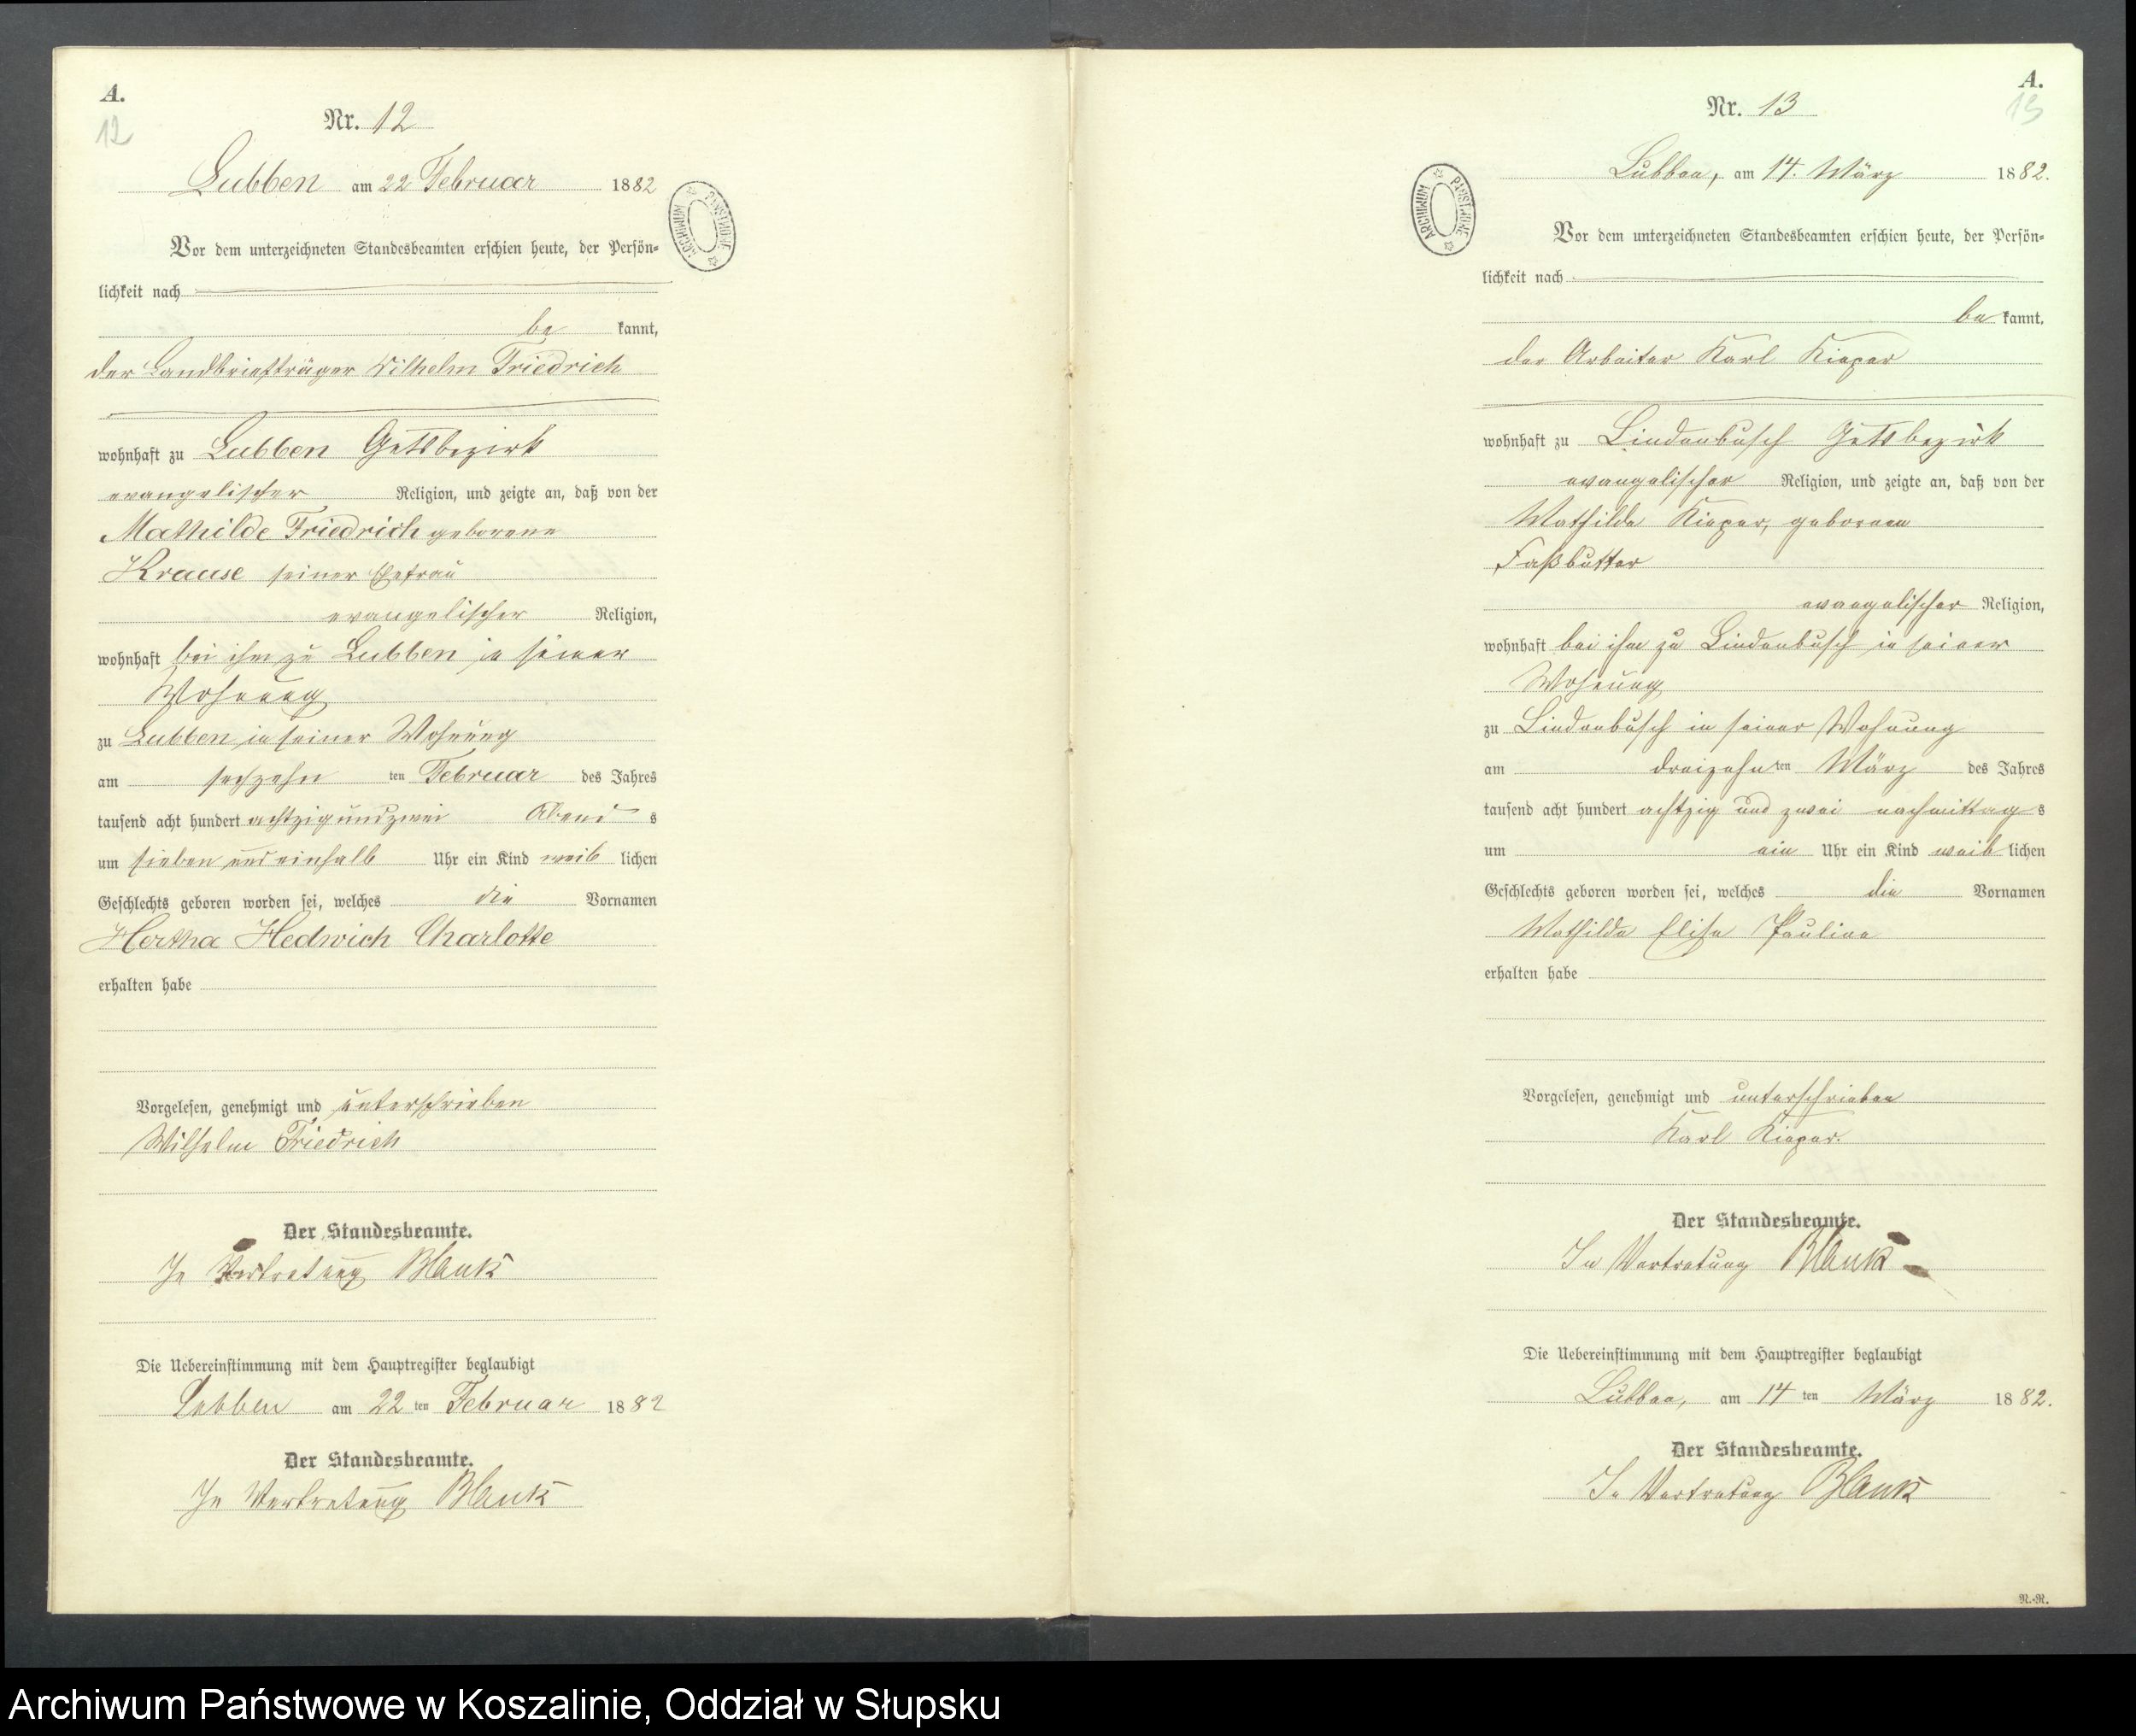 A.
12
Nr. 12
Lubben am 22 Februar 1882
ARCHIWUM PAŃSTWOWE
Vor dem unterzeichneten Standesbeamten erschien heute, der Persön-
lichkeit nach
be kannt,
der Landbriefträger Wilhelm Friedrich
wohnhaft zu Lubben Gutsbezirk
evangelischer Religion, und zeigte an, daß von der
Mathilde Friedrich geborene
Krause seiner Ehefrau
evangelischer Religion,
wohnhaft bei ihm zu Lubben in seiner
Wohnung
zu Lubben in seiner Wohnung
am sechzehn ten Februar des Jahres
tausend acht hundert achtzig und zwei Abend s
um sieben und einhalb Uhr ein Kind weib lichen
Geschlechts geboren worden sei, welches die Vornamen
Hertha Hedwich Charlotte
erhalten habe
Vorgelesen, genehmigt und unterschrieben
Wilhelm Friedrich
Der Standesbeamte.
In Vertretung Blank
Die Uebereinstimmung mit dem Hauptregister beglaubigt
Lubben am 22 ten Februar 1882
Der Standesbeamte.
In Vertretung Blank
A.
13
Nr. 13
Lubben, am 14. März 1882.
ARCHIWUM PAŃSTWOWE
Vor dem unterzeichneten Standesbeamten erschien heute, der Persön-
lichkeit nach
be kannt,
der Arbeiter Karl Kieper
wohnhaft zu Lindenbusch Gutsbezirk
evangelischer Religion, und zeigte an, daß von der
Mathilde Kieper, geborenen
Faßbutter
evangelischer Religion,
wohnhaft bei ihm zu Lindenbusch in seiner
Wohnung
zu Lindenbusch in seiner Wohnung
am dreizehn ten März des Jahres
tausend acht hundert achtzig und zwei nachmittag s
um ein Uhr ein Kind weib lichen
Geschlechts geboren worden sei, welches die Vornamen
Mathilde Elise Pauline
erhalten habe
Vorgelesen, genehmigt und unterschrieben
Karl Kieper.
Der Standesbeamte.
In Vertretung Blank
Die Uebereinstimmung mit dem Hauptregister beglaubigt
Lubben, am 14 ten März 1882.
Der Standesbeamte.
In Vertretung Blank
N.-R.
Archiwum Państwowe w Koszalinie, Oddział w Słupsku